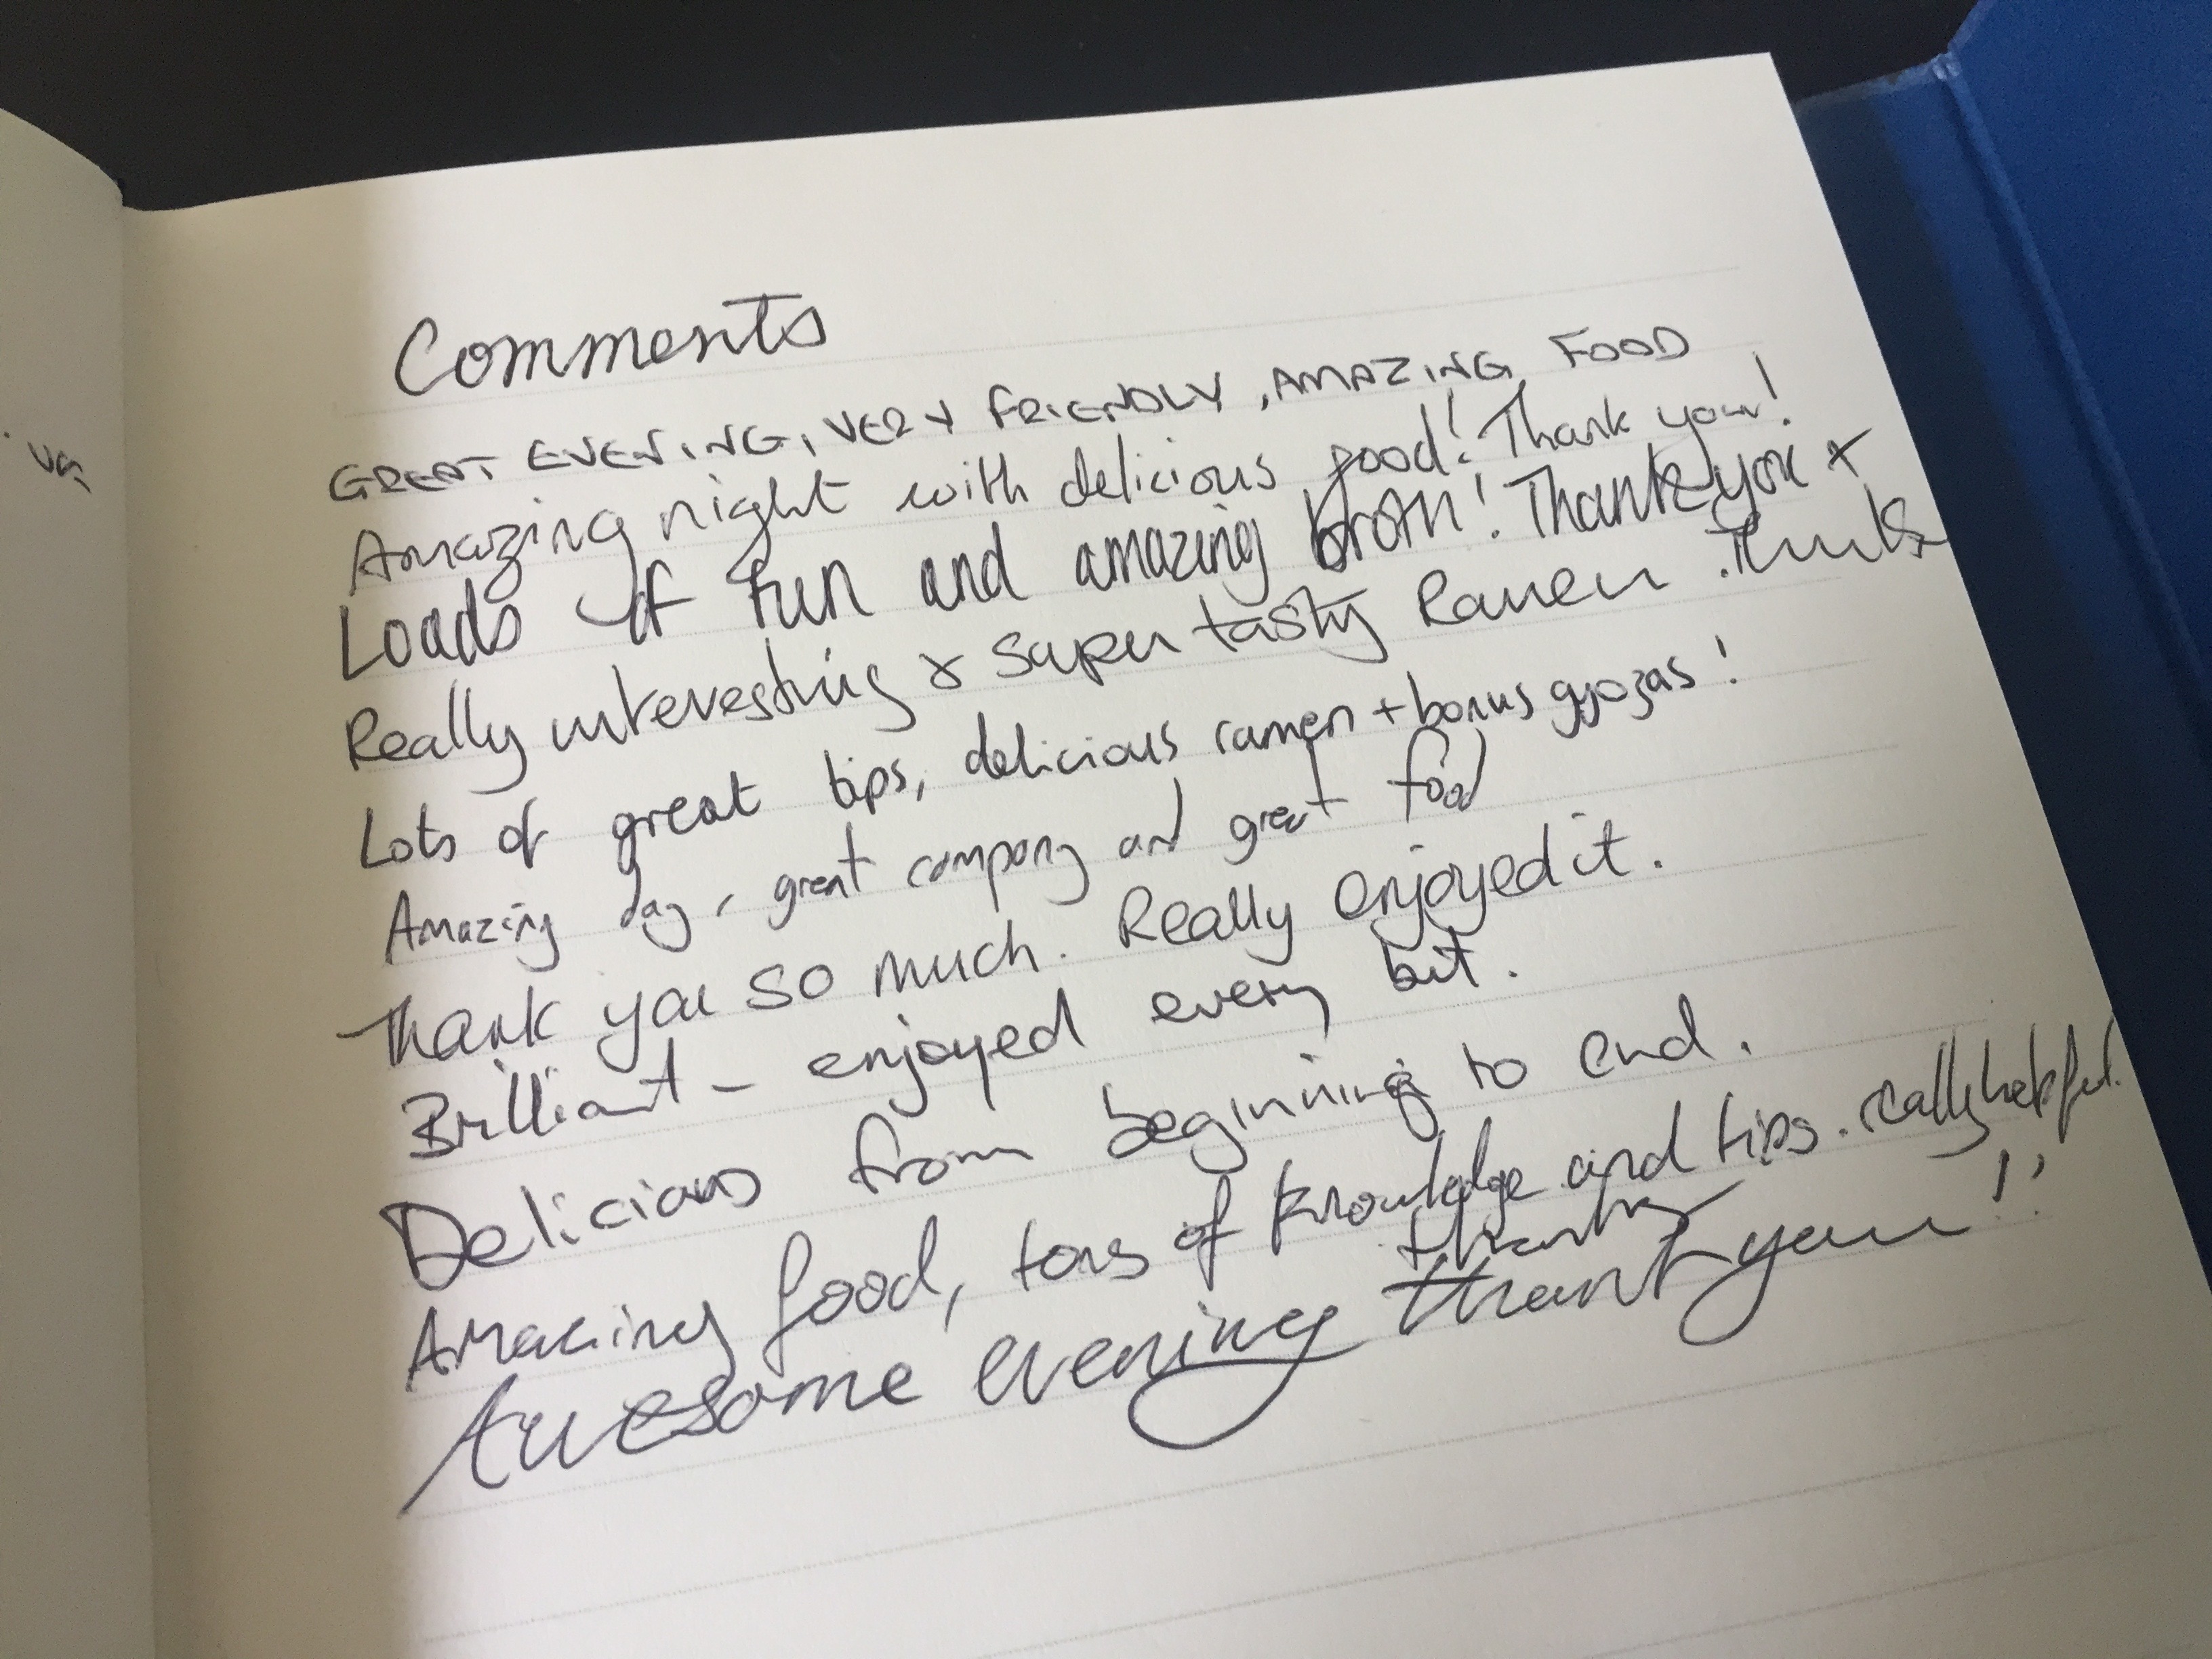 Comments
GREAT EVENING, VERY FRIENDLY, AMAZING FOOD
Amazing night with delicious food! Thank you!
Loads of fun and amazing broth! Thank you x
Really interesting & super tasty Ramen. Thanks
Lots of great tips, delicious ramen + bonus gyozas!
Amazing day, great company and great food
Thank you so much. Really enjoyed it.
Brilliant - enjoyed every bit.
Delicious from beginning to end.
Amazing food, tons of knowledge and tips. really helpful.
thanks
Awesome evening thank you!!